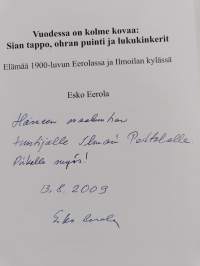 Vuodessa on kolme kovaa:
Sian tappo, ohran puinti ja lukukinkerit
Elämää 1900-luvun Eerolassa ja Ilmoilan kylässä
Esko Eerola
Hämeen maakunnan
tuntijalle Ilmari
myös!
13.8.2009
Esko Eerola